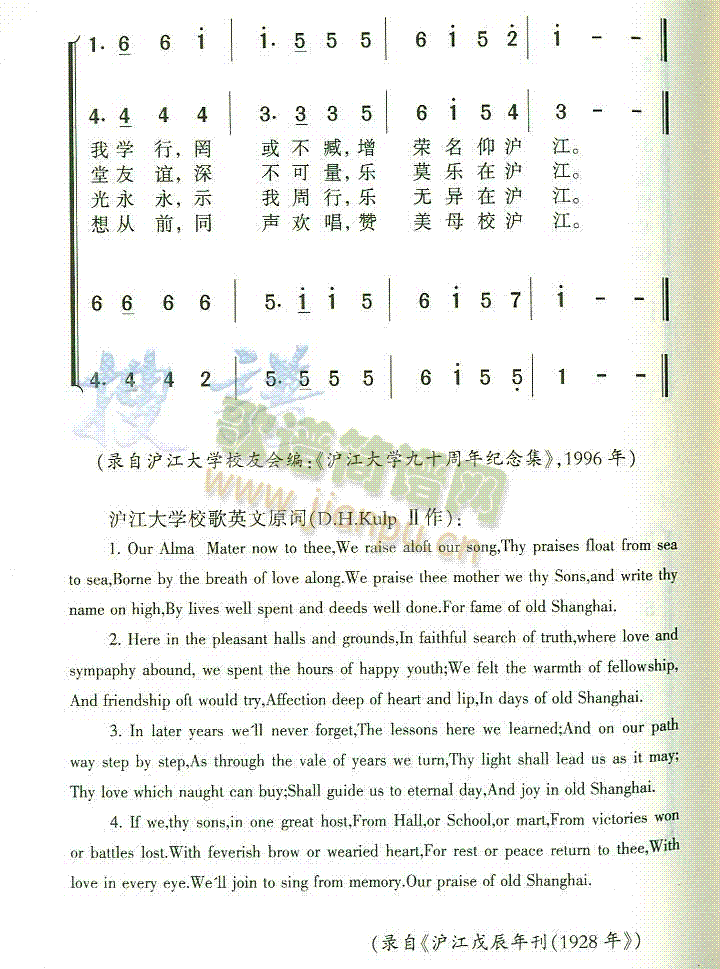 1. 6 6 i | i. 5 5 5 | 6 i 5 2 | i - - ‖
4. 4 4 4 | 3. 3 3 5 | 6 i 5 4 | 3 - - ‖
我学行,罔 或不臧,增 荣名仰沪 江。
堂友谊,深 不可量,乐 莫乐在沪 江。
光永永,示 我周行,乐 无异在沪 江。
想从前,同 声欢唱,赞 美母校沪 江。
6 6 6 6 | 5. i i 5 | 6 i 5 7 | i - - ‖
4. 4 4 2 | 5. 5 5 5 | 6 i 5 5 | 1 - - ‖
搜谱
歌谱简谱网
www.jianpu.cn
(录自沪江大学校友会编:《沪江大学九十周年纪念集》,1996年)
沪江大学校歌英文原词(D.H.Kulp Ⅱ作):
1. Our Alma Mater now to thee,We raise aloft our song,Thy praises float from sea
to sea,Borne by the breath of love along.We praise thee mother we thy Sons,and write thy
name on high,By lives well spent and deeds well done.For fame of old Shanghai.
2. Here in the pleasant halls and grounds,In faithful search of truth,where love and
sympaphy abound, we spent the hours of happy youth;We felt the warmth of fellowship,
And friendship oft would try,Affection deep of heart and lip,In days of old Shanghai.
3. In later years we'll never forget,The lessons here we learned;And on our path
way step by step,As through the vale of years we turn,Thy light shall lead us as it may;
Thy love which naught can buy;Shall guide us to eternal day,And joy in old Shanghai.
4. If we,thy sons,in one great host,From Hall,or School,or mart,From victories won
or battles lost.With feverish brow or wearied heart,For rest or peace return to thee,With
love in every eye.We'll join to sing from memory.Our praise of old Shanghai.
(录自《沪江戊辰年刊(1928年》)